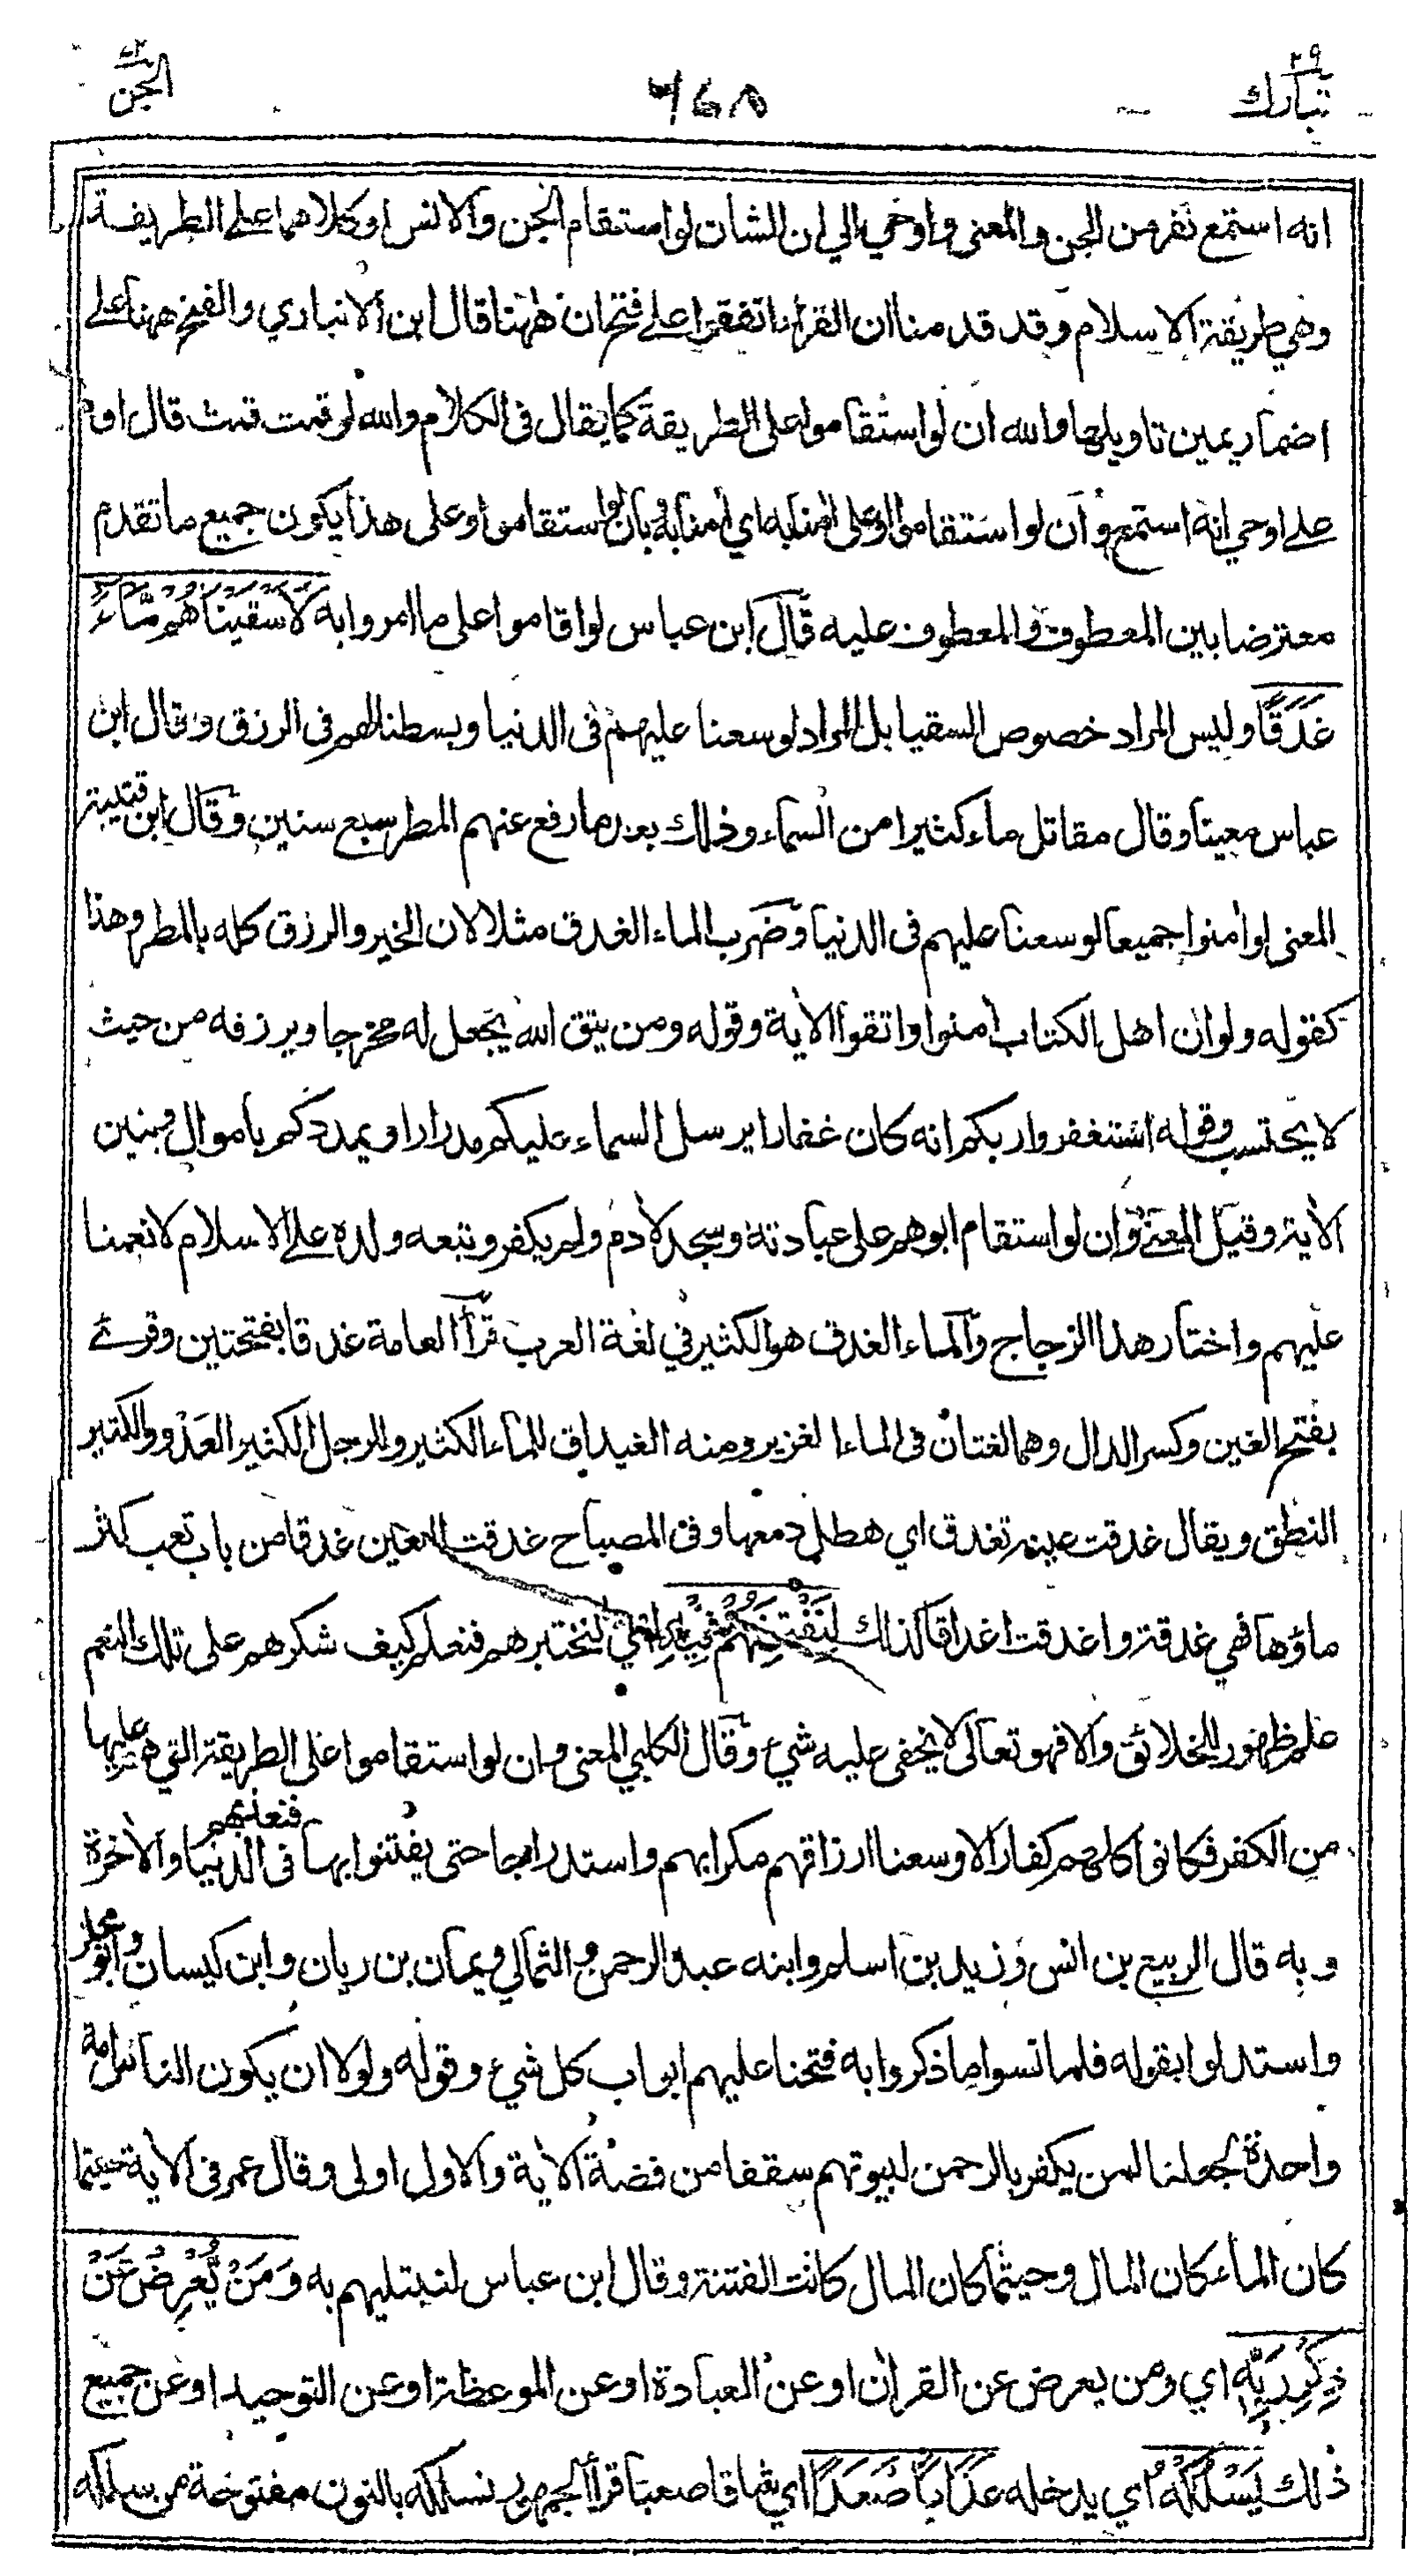 تبارك ٢٩
الجن
انه استمع نفر من الجن والمعنى واوحي الي ان الشان لو استقام الجن والانس او كلاهما على الطريقة
وهي طريقة الاسلام وقد قدمنا ان القراء اتفقوا على فتح ان ههنا قال ابن الانباري والفتح ههنا على
اضمار يمين تاويلها والله ان لو استقاموا على الطريقة كما يقال في الكلام والله لو قمت قمت قال او
على اوحي انه استمع وأن لو استقاموا او على امنا به اي امنا به وبان لو استقاموا وعلى هذا يكون جميع ما تقدم
معترضا بين المعطوف والمعطوف عليه قال ابن عباس لو اقاموا على ما امروا به لَاَسْقَيْنَاهُمْ مَّاءً
غَدَقًا وليس المراد خصوص السقيا بل المراد لوسعنا عليهم في الدنيا وبسطنا لهم في الرزق وقال ابن
عباس معينا وقال مقاتل ماء كثيرا من السماء وذلك بعد ما رفع عنهم المطر سبع سنين وقال ابن قتيبة
المعنى لو أمنوا جميعا لوسعنا عليهم في الدنيا وضرب الماء الغدق مثلا لان الخير والرزق كله بالمطر وهذا
كقوله ولو ان اهل الكتاب أمنوا واتقوا الأية وقوله ومن يتق الله يجعل له مخرجا ويرزقه من حيث
لا يحتسب وقوله استغفروا ربكم انه كان غفارا يرسل السماء عليكم مدرارا ويمددكم بأموال وبنين
الأية وقيل المعنى وان لو استقام ابوهم على عبادته وسجد لأدم ولم يكفر وتبعه ولده على الاسلام لانعمنا
عليهم واختار هذا الزجاج والماء الغدق هو الكثير في لغة العرب قرأ العامة غدقا بفتحتين وقرئ
بفتح الغين وكسر الدال وهما لغتان في الماء الغزير ومنه الغيداق للماء الكثير وللرجل الكثير العدو والكثير
النطق ويقال غدقت عينه تغدق اي هطل دمعها وفي المصباح غدقت العين غدقا من باب تعب كثر
ماؤها فهي غدقة واغدقت اغداقا كذلك لِنَفْتِنَهُمْ فِيْهِ اي لنختبرهم فنعلم كيف شكرهم على تلك النعم
علم ظهور للخلائق والا فهو تعالى لا يخفى عليه شيء وقال الكلبي المعنى وان لو استقاموا على الطريقة التي هم عليها
من الكفر فكانوا كلهم كفارا لاوسعنا ارزاقهم مكرا بهم واستدراجا حتى يفتنوا بها فنعذبهم في الدنيا والأخرة
وبه قال الربيع بن انس وزيد بن اسلم وابنه عبد الرحمن والثمالي ويمان بن ريان وابن كيسان وابو مجلز
واستدلوا بقوله فلما نسوا ما ذكروا به فتحنا عليهم ابواب كل شيء وقوله ولولا ان يكون الناس امة
واحدة لجعلنا لمن يكفر بالرحمن لبيوتهم سقفا من فضة الأية والاول اولى وقال عمر في الأية حيثما
كان الماء كان المال وحيثما كان المال كانت الفتنة وقال ابن عباس لنبتليهم به وَمَنْ يُّعْرِضْ عَنْ
ذِكْرِ رَبِّهٖ اي ومن يعرض عن القرأن او عن العبادة او عن الموعظة او عن التوحيد او عن جميع
ذلك يَسْلُكْهُ اي يدخله عَذَابًا صَعَدًا اي شاقا صعبا قرأ الجمهور نسلكه بالنون مفتوحة من سلكه